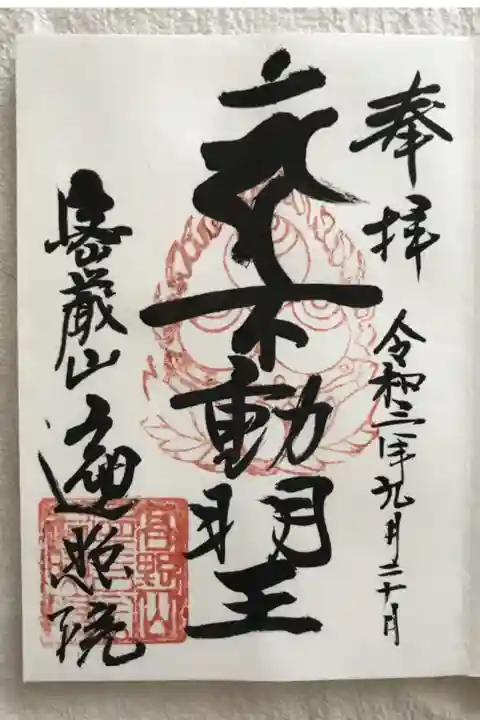 奉拝
令和三年九月二十日
不動明王
密厳山
遍照院
高野山